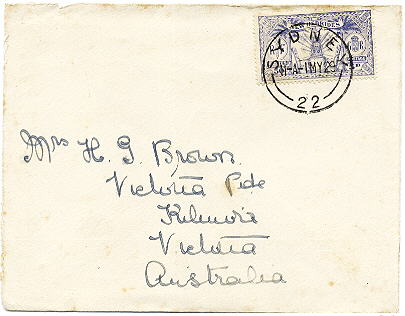 NEW HEBRIDES
SYDNEY
-A-1MY29
22
Mrs H. G. Brown.
Victoria Pde
Kilmore
Victoria
Australia